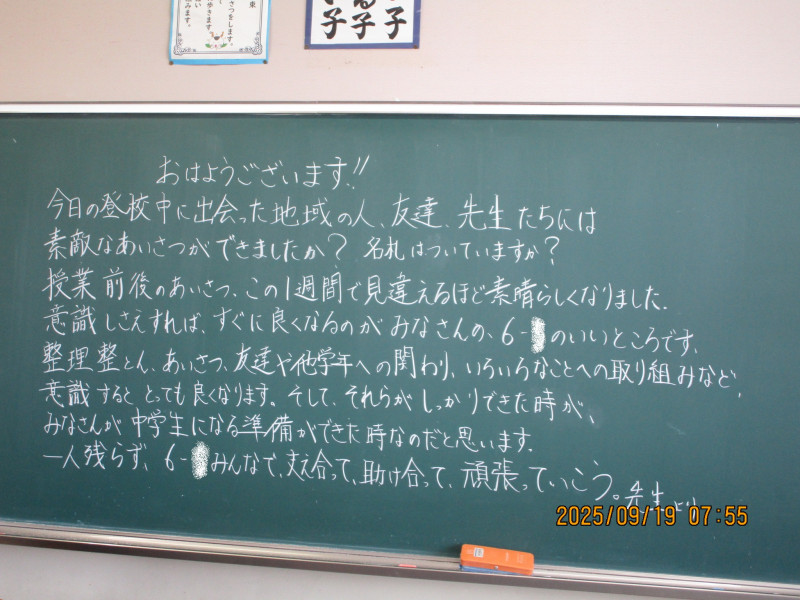 東
さつをします。
歩きます。
い
組みます。
子
る子
子
おはようございます!!
今日の登校中に出会った地域の人、友達、先生たちには
素敵なあいさつができましたか? 名札はついていますか?
授業前後のあいさつ、この1週間で見違えるほど素晴らしくなりました。
意識しさえすれば、すぐに良くなるのがみなさんの、6-のいいところです。
整理整とん、あいさつ、友達や他学年への関わり、いろいろなことへの取り組みなど、
意識するととっても良くなります。そして、それらがしっかりできた時が、
みなさんが中学生になる準備ができた時なのだと思います。
一人残らず、6-みんなで、支え合って、助け合って、頑張っていこう。先生より
2025/09/19 07:55